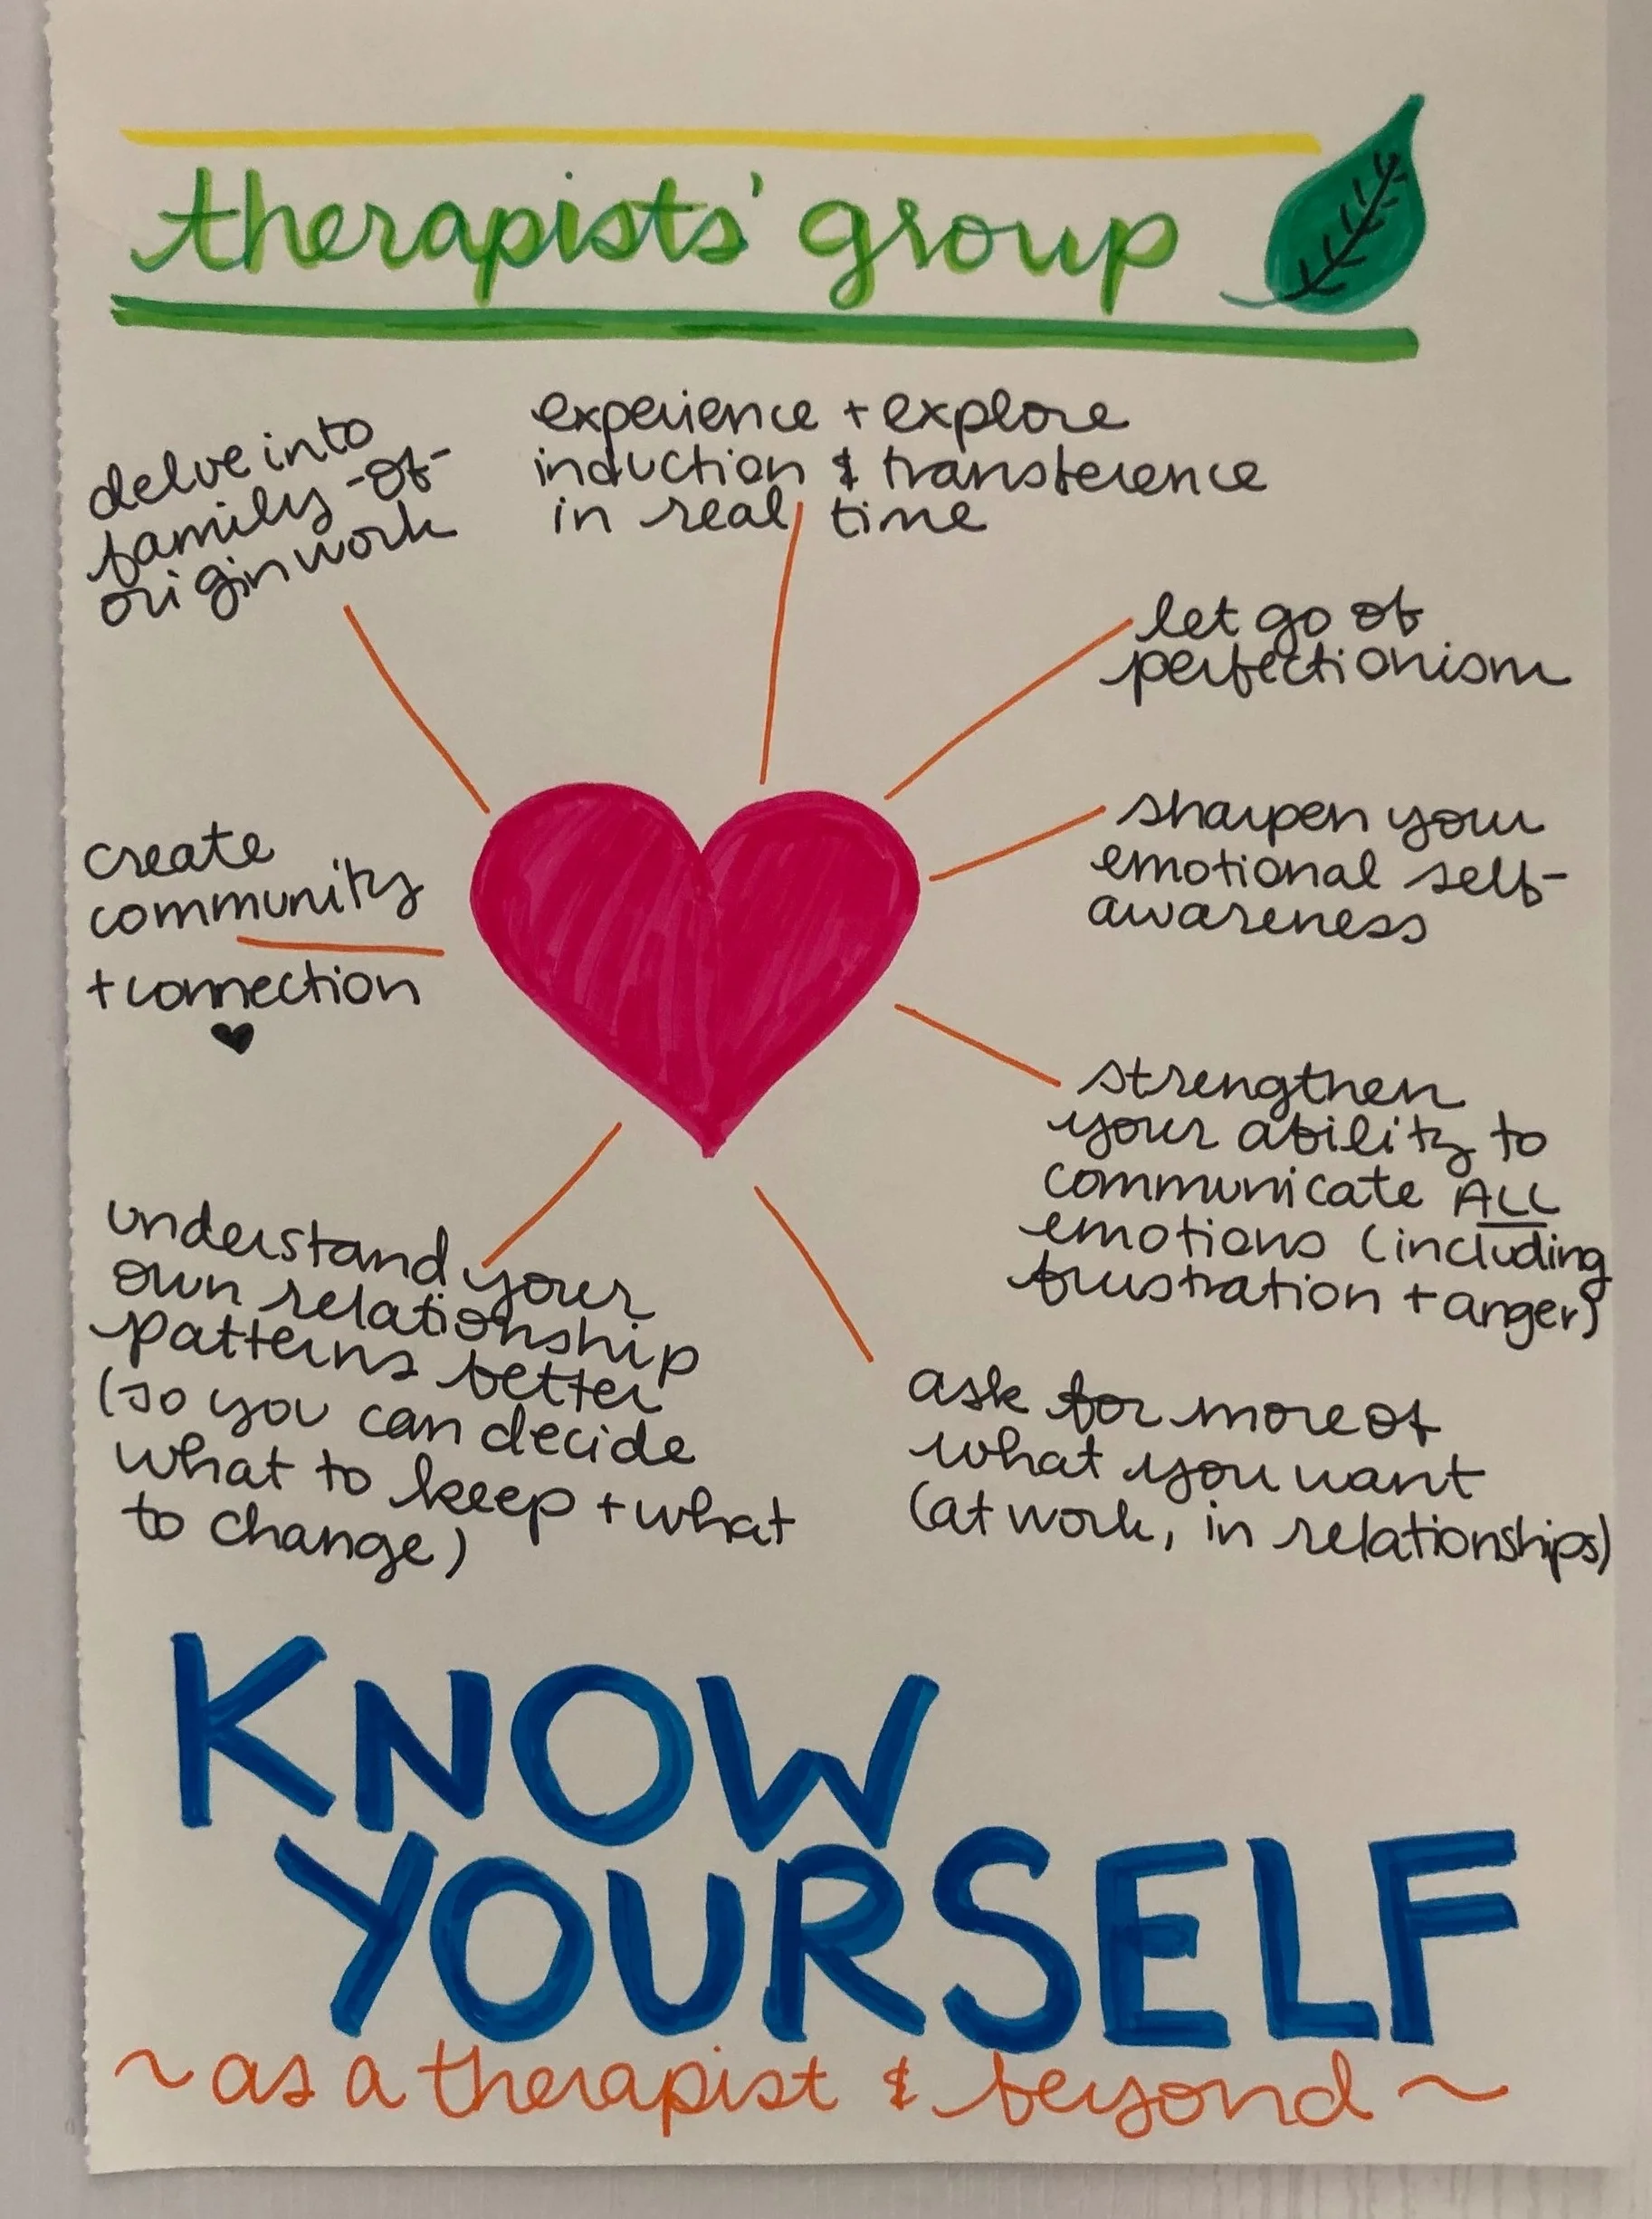 therapists' group
delve into
family-of-
origin work
experience + explore
induction & transference
in real time
let go of
perfectionism
sharpen your
emotional self-
awareness
create
community
+ connection
strengthen
your ability to
communicate ALL
emotions (including
frustration + anger)
understand your
own relationship
patterns better
(so you can decide
what to keep + what
to change)
ask for more of
what you want
(at work, in relationships)
KNOW
YOURSELF
~ as a therapist & beyond ~